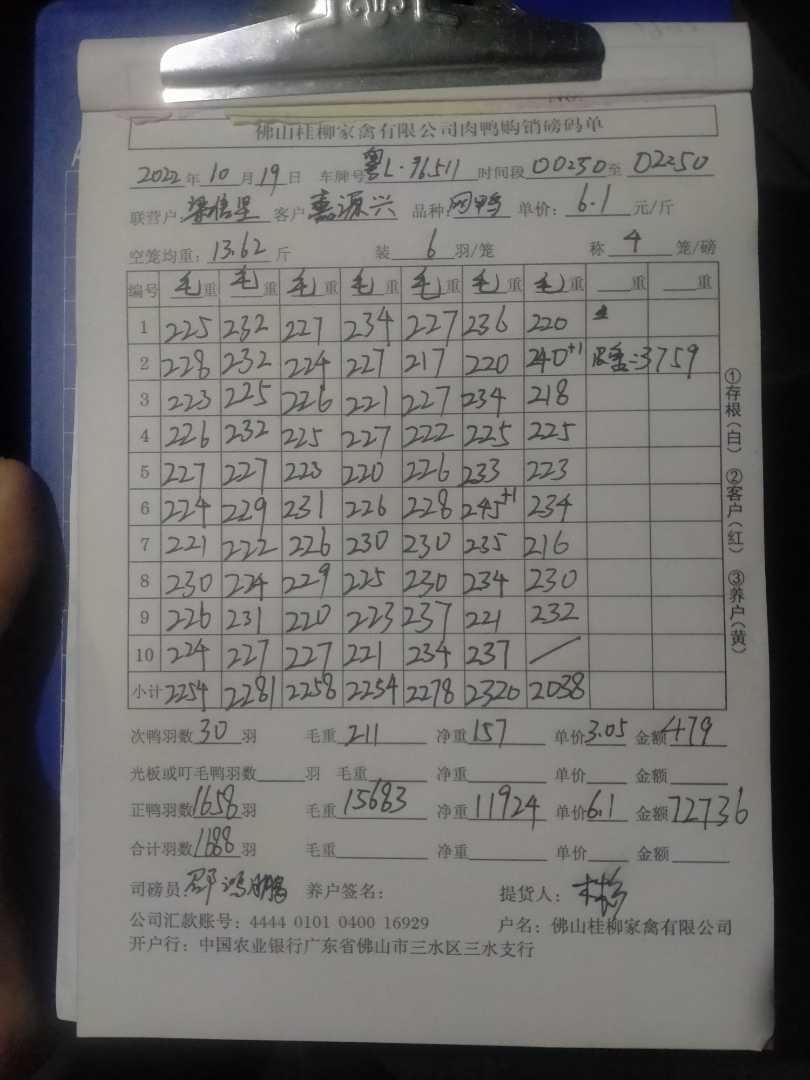 佛山桂柳家禽有限公司肉鸭购销磅码单
2022年10月19日 车牌号粤L·96511 时间段00230至02250
联营户: 客户嘉源兴 品种网鸭 单价:6.1元/斤
空笼均重:13.62斤 装6羽/笼 称4笼/磅
编号 毛重 毛重 毛重 毛重 毛重 毛重 毛重 重 重
1 225 232 227 234 227 236 220
2 228 232 224 227 217 220 240+1 =3759
3 223 225 226 221 227 234 218
4 226 232 225 227 222 225 225
5 227 227 223 220 226 233 223
6 224 229 231 226 228 245+1 234
7 221 222 226 230 230 235 216
8 230 224 229 225 230 234 230
9 226 231 220 223 237 221 232
10 224 227 227 221 234 237 /
小计 2254 2281 2258 2254 2278 2320 2038
次鸭羽数30羽 毛重211 净重157 单价3.05 金额479
光板或叮毛鸭羽数 羽 毛重 净重 单价 金额
正鸭羽数1658羽 毛重15683 净重11924 单价6.1 金额72736
合计羽数1688羽 毛重 净重 单价 金额
司磅员: 养户签名: 提货人:
公司汇款账号:4444 0101 0400 16929 户名:佛山桂柳家禽有限公司
开户行:中国农业银行广东省佛山市三水区三水支行
①存根(白) ②客户(红) ③养户(黄)